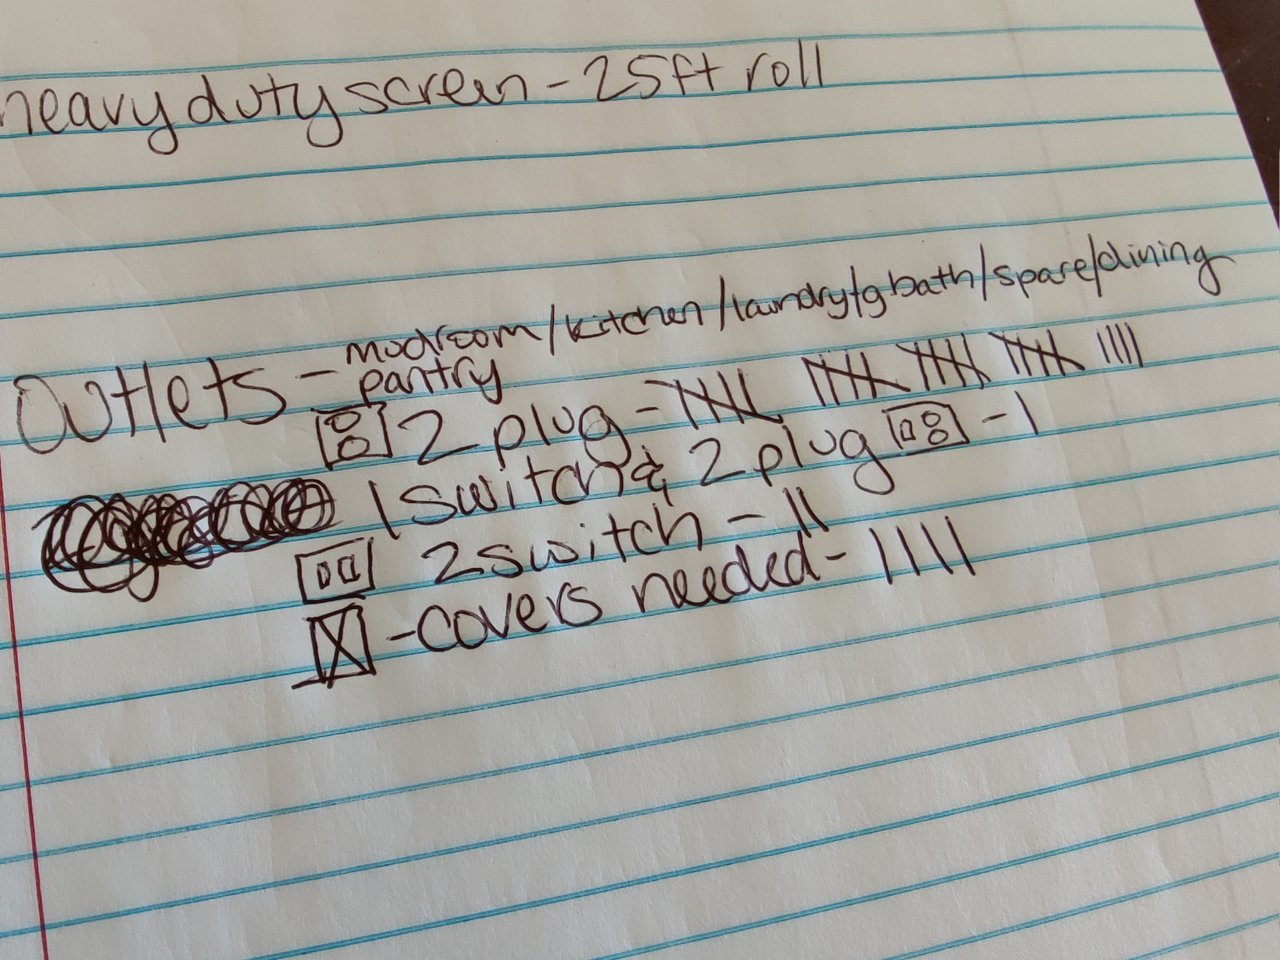 heavy duty screen - 25ft roll
Outlets - mudroom/kitchen/laundry/g bath/spare/dining
pantry
2 plug - 𝍸 𝍸 𝍸 𝍸 ||||
1 switch & 2 plug - 1
2 switch - ||
- covers needed - ||||